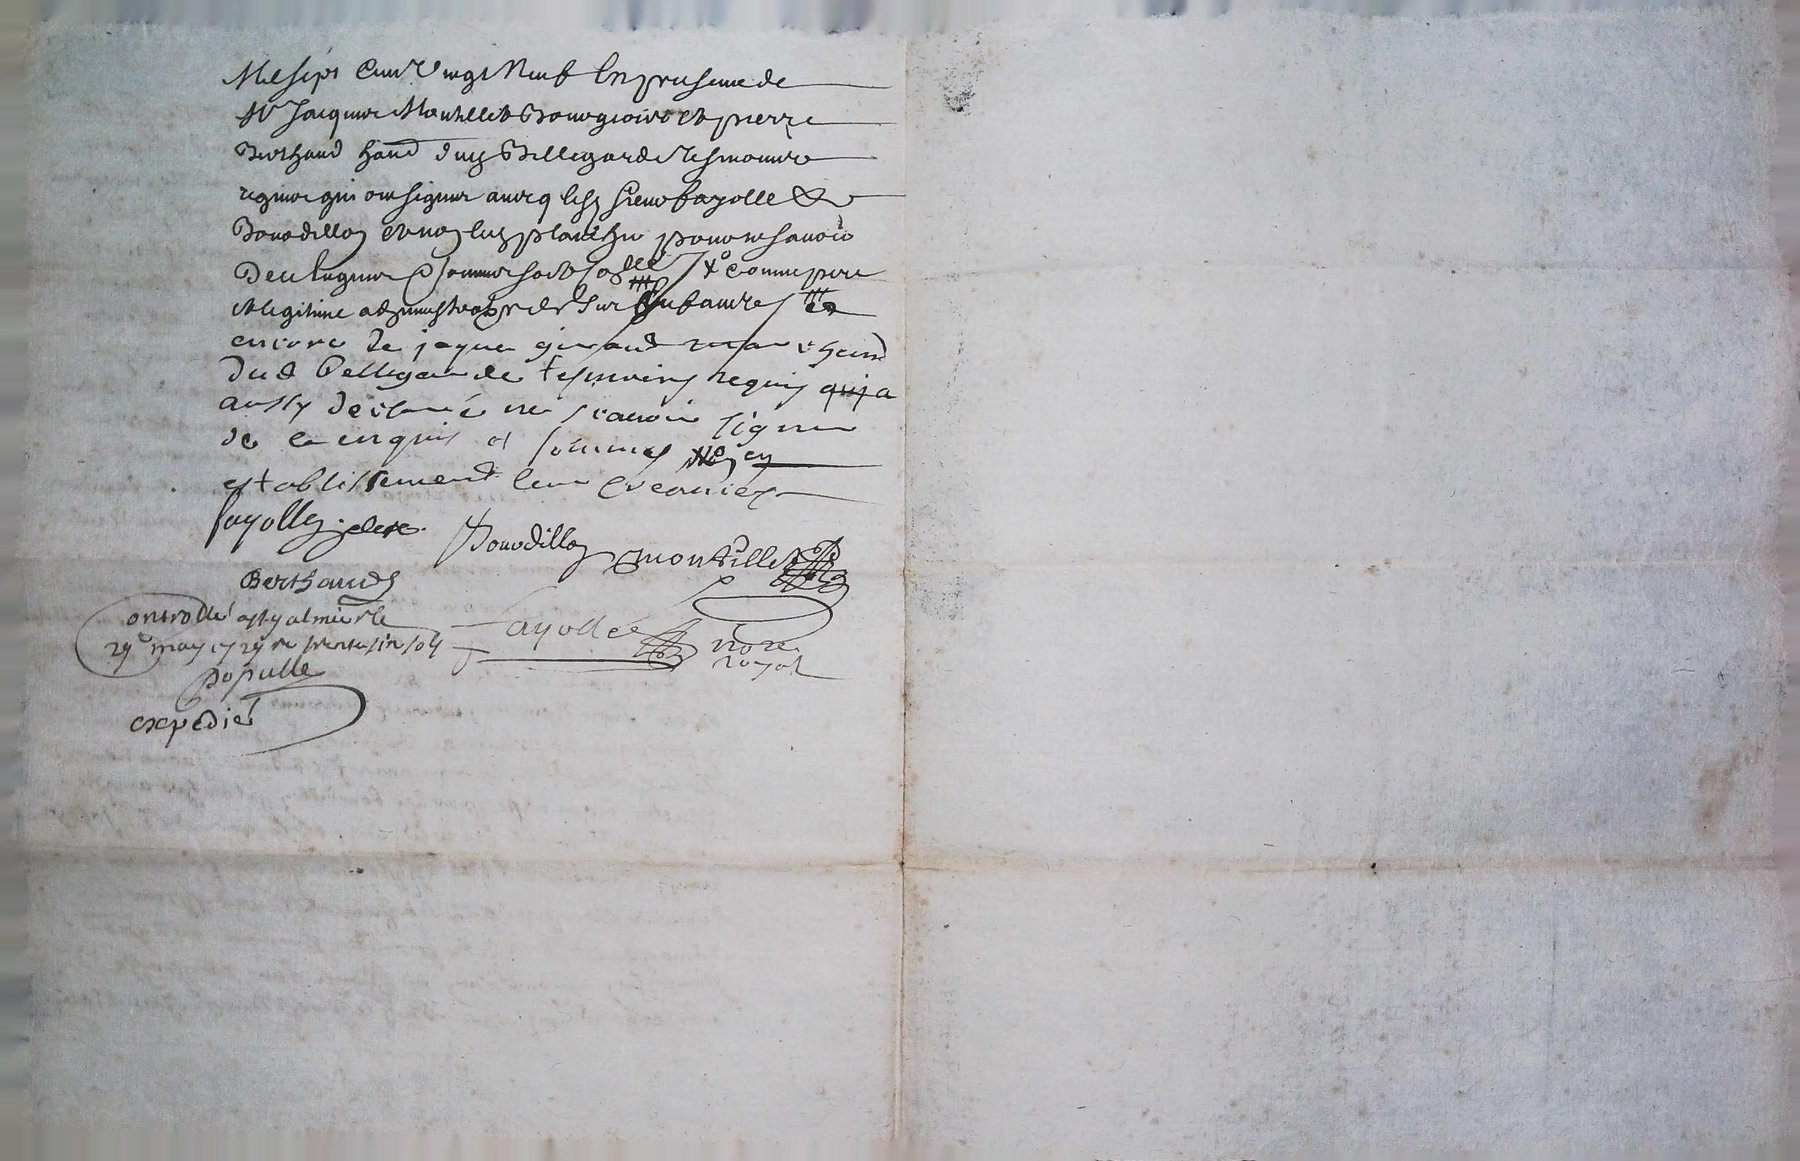 Mil sept Cent Vingt Neuf En presence de
Sr Jacques Montillet Bourgeois et pierre
Berthaud hand dud Bellegarde tesmoins
requis qui ont signes avecq lesd Sieurs fayolle &
Bourdillon et non lad planche pour ne savoir
De ce Enquise & sommee led fayolle comme pere
et legitime administrateur de
encore de jaques giraud marchand
dud Bellegarde tesmoins requis qui a
aussy declaré ne scavoir signer
de ce enquis et sommes
establissement leur creancier
fayolle clerc.
Bourdillon
montillet
Berthaud
Controllé a St galmier le
29e may 1729 re trente six sols
fayolle
nore
royal
populle
expedié